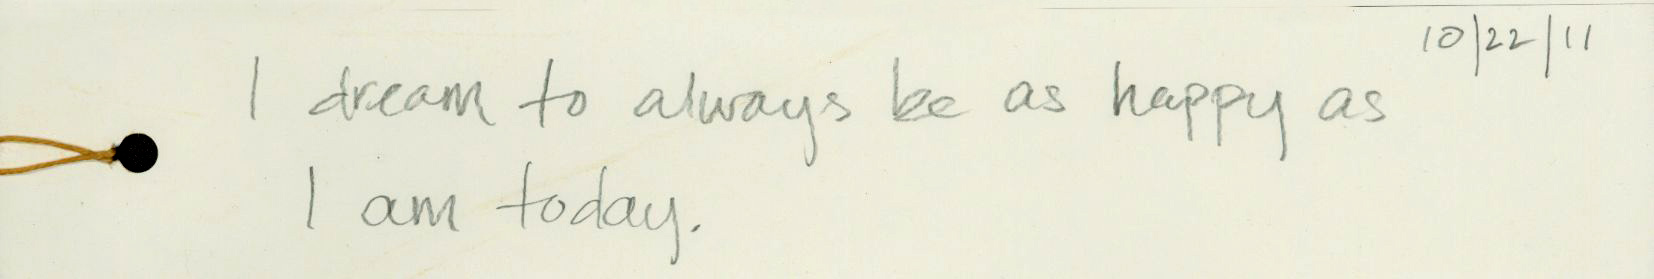 10/22/11
I dream to always be as happy as
I am today.